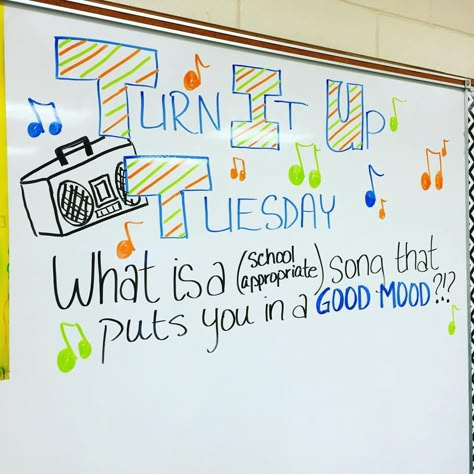 TURN IT UP
TUESDAY
What is a (school appropriate) song that
puts you in a GOOD MOOD?!?